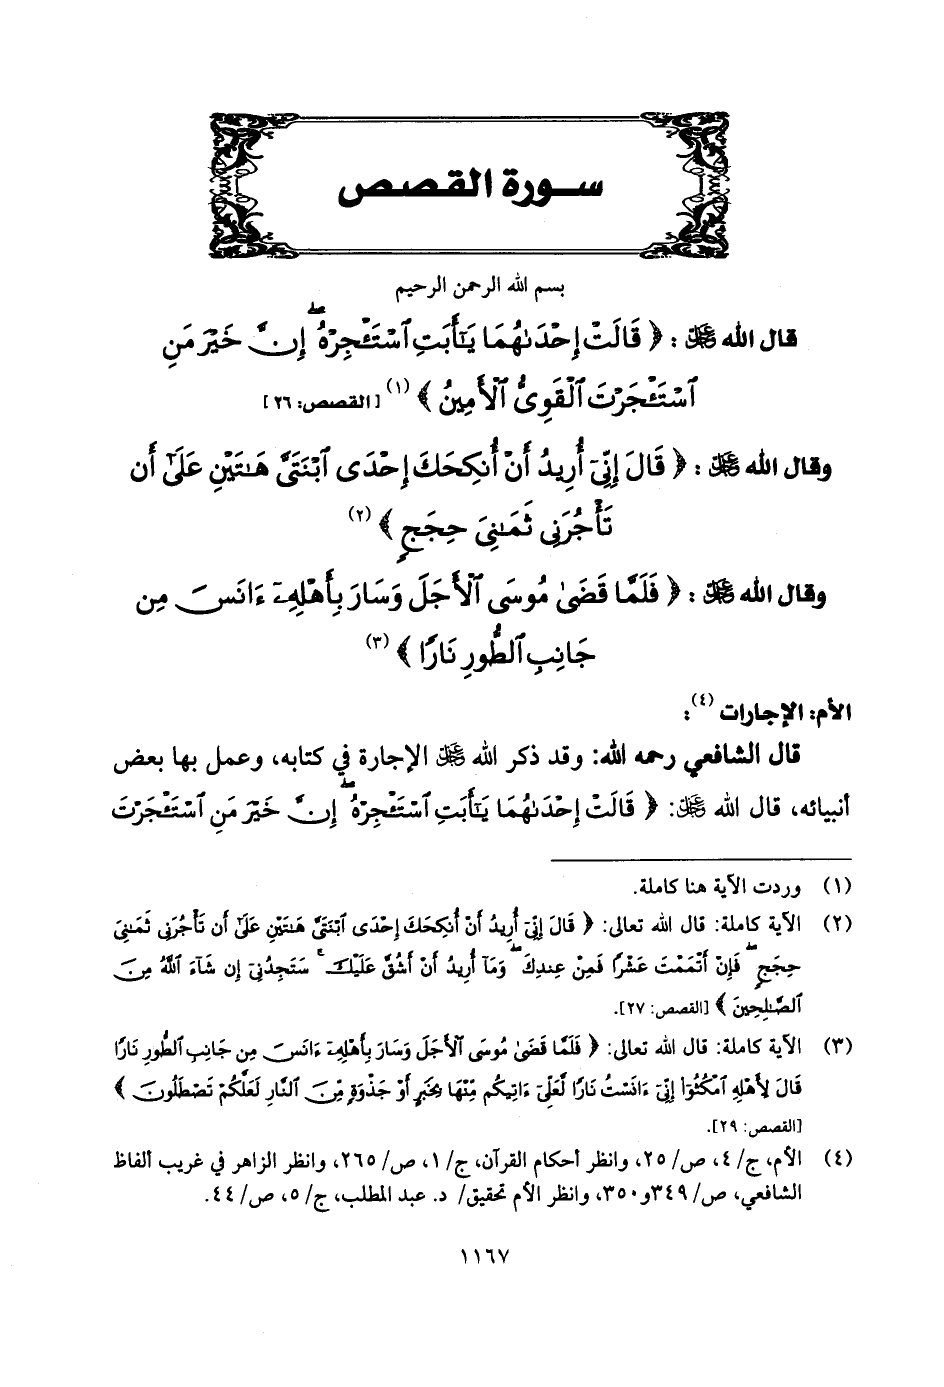 سورة القصص
بسم الله الرحمن الرحيم
قال الله ﷻ: ﴿ قَالَتْ إِحْدَىٰهُمَا يَـٰٓأَبَتِ ٱسْتَـْٔجِرْهُ ۖ إِنَّ خَيْرَ مَنِ
ٱسْتَـْٔجَرْتَ ٱلْقَوِىُّ ٱلْأَمِينُ ﴾ (١) [القصص: ٢٦]
وقال الله ﷻ: ﴿ قَالَ إِنِّىٓ أُرِيدُ أَنْ أُنكِحَكَ إِحْدَى ٱبْنَتَىَّ هَـٰتَيْنِ عَلَىٰٓ أَن
تَأْجُرَنِى ثَمَـٰنِىَ حِجَجٍ ﴾ (٢)
وقال الله ﷻ: ﴿ فَلَمَّا قَضَىٰ مُوسَى ٱلْأَجَلَ وَسَارَ بِأَهْلِهِۦٓ ءَانَسَ مِن
جَانِبِ ٱلطُّورِ نَارًا ﴾ (٣)
الأم: الإجارات (٤):
قال الشافعي رحمه الله: وقد ذكر الله ﷻ الإجارة في كتابه، وعمل بها بعض
أنبيائه، قال الله ﷻ: ﴿ قَالَتْ إِحْدَىٰهُمَا يَـٰٓأَبَتِ ٱسْتَـْٔجِرْهُ ۖ إِنَّ خَيْرَ مَنِ ٱسْتَـْٔجَرْتَ
(١) وردت الآية هنا كاملة.
(٢) الآية كاملة: قال الله تعالى: ﴿ قَالَ إِنِّىٓ أُرِيدُ أَنْ أُنكِحَكَ إِحْدَى ٱبْنَتَىَّ هَـٰتَيْنِ عَلَىٰٓ أَن تَأْجُرَنِى ثَمَـٰنِىَ
حِجَجٍ ۖ فَإِنْ أَتْمَمْتَ عَشْرًا فَمِنْ عِندِكَ ۖ وَمَآ أُرِيدُ أَنْ أَشُقَّ عَلَيْكَ ۚ سَتَجِدُنِىٓ إِن شَآءَ ٱللَّهُ مِنَ
ٱلصَّـٰلِحِينَ ﴾ [القصص: ٢٧].
(٣) الآية كاملة: قال الله تعالى: ﴿ فَلَمَّا قَضَىٰ مُوسَى ٱلْأَجَلَ وَسَارَ بِأَهْلِهِۦٓ ءَانَسَ مِن جَانِبِ ٱلطُّورِ نَارًا
قَالَ لِأَهْلِهِ ٱمْكُثُوٓا۟ إِنِّىٓ ءَانَسْتُ نَارًا لَّعَلِّىٓ ءَاتِيكُم مِّنْهَا بِخَبَرٍ أَوْ جَذْوَةٍ مِّنَ ٱلنَّارِ لَعَلَّكُمْ تَصْطَلُونَ ﴾
[القصص: ٢٩].
(٤) الأم، ج/ ٤، ص/ ٢٥، وانظر أحكام القرآن، ج/ ١، ص/ ٢٦٥، وانظر الزاهر في غريب ألفاظ
الشافعي، ص/ ٣٤٩و٣٥٠، وانظر الأم تحقيق/ د. عبد المطلب، ج/ ٥، ص/ ٤٤.
١١٦٧